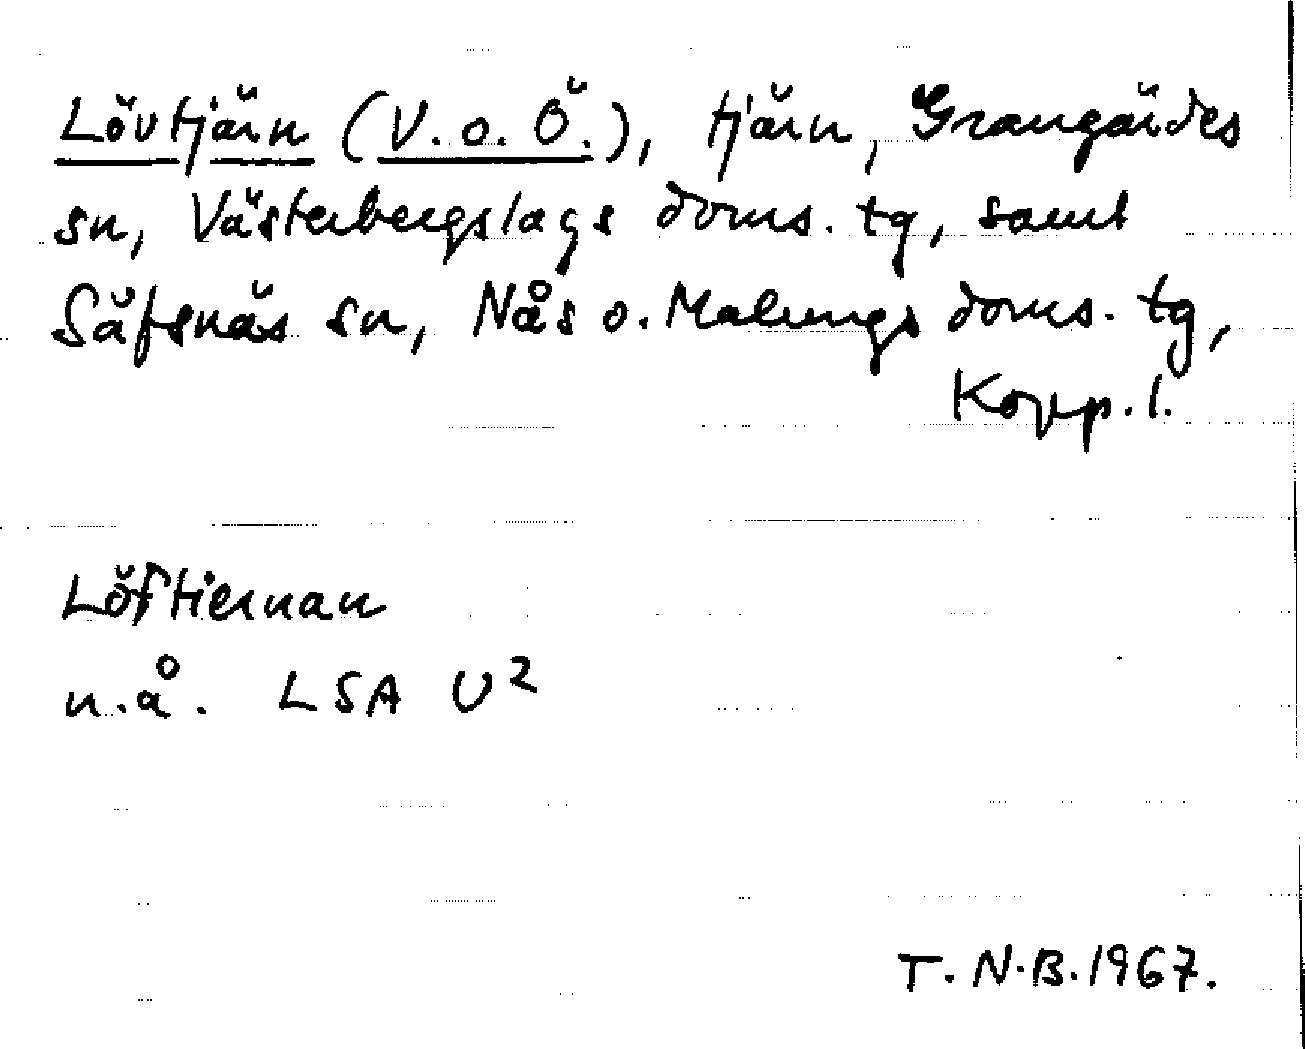 Lövtjärn (V. o. Ö.), tjärn, Grangärdes
sn, Västerbergslags doms. tg, samt
Säfsnäs sn, Nås o. Malungs doms. tg,
Kopp. l.
Löftiernan
n.å. LSA U²
T. N.B. 1967.